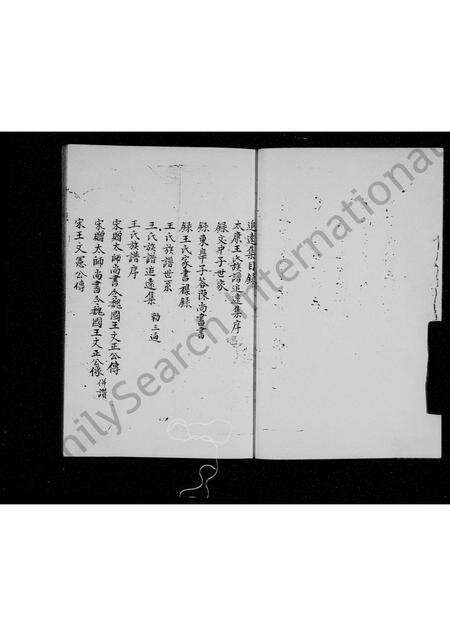 追遠集目錄
太原王氏族譜追遠集序
錄文中子世家
錄東皐子答陳尚書書
錄王氏家書襍錄
王氏族譜世系
王氏族譜追遠集 勅三通
王氏族譜序
宋贈太師尚書令魏國王文正公傳
宋贈太師尚書令魏國王文正公像 併讚
宋王文憲公傳
FamilySearch International